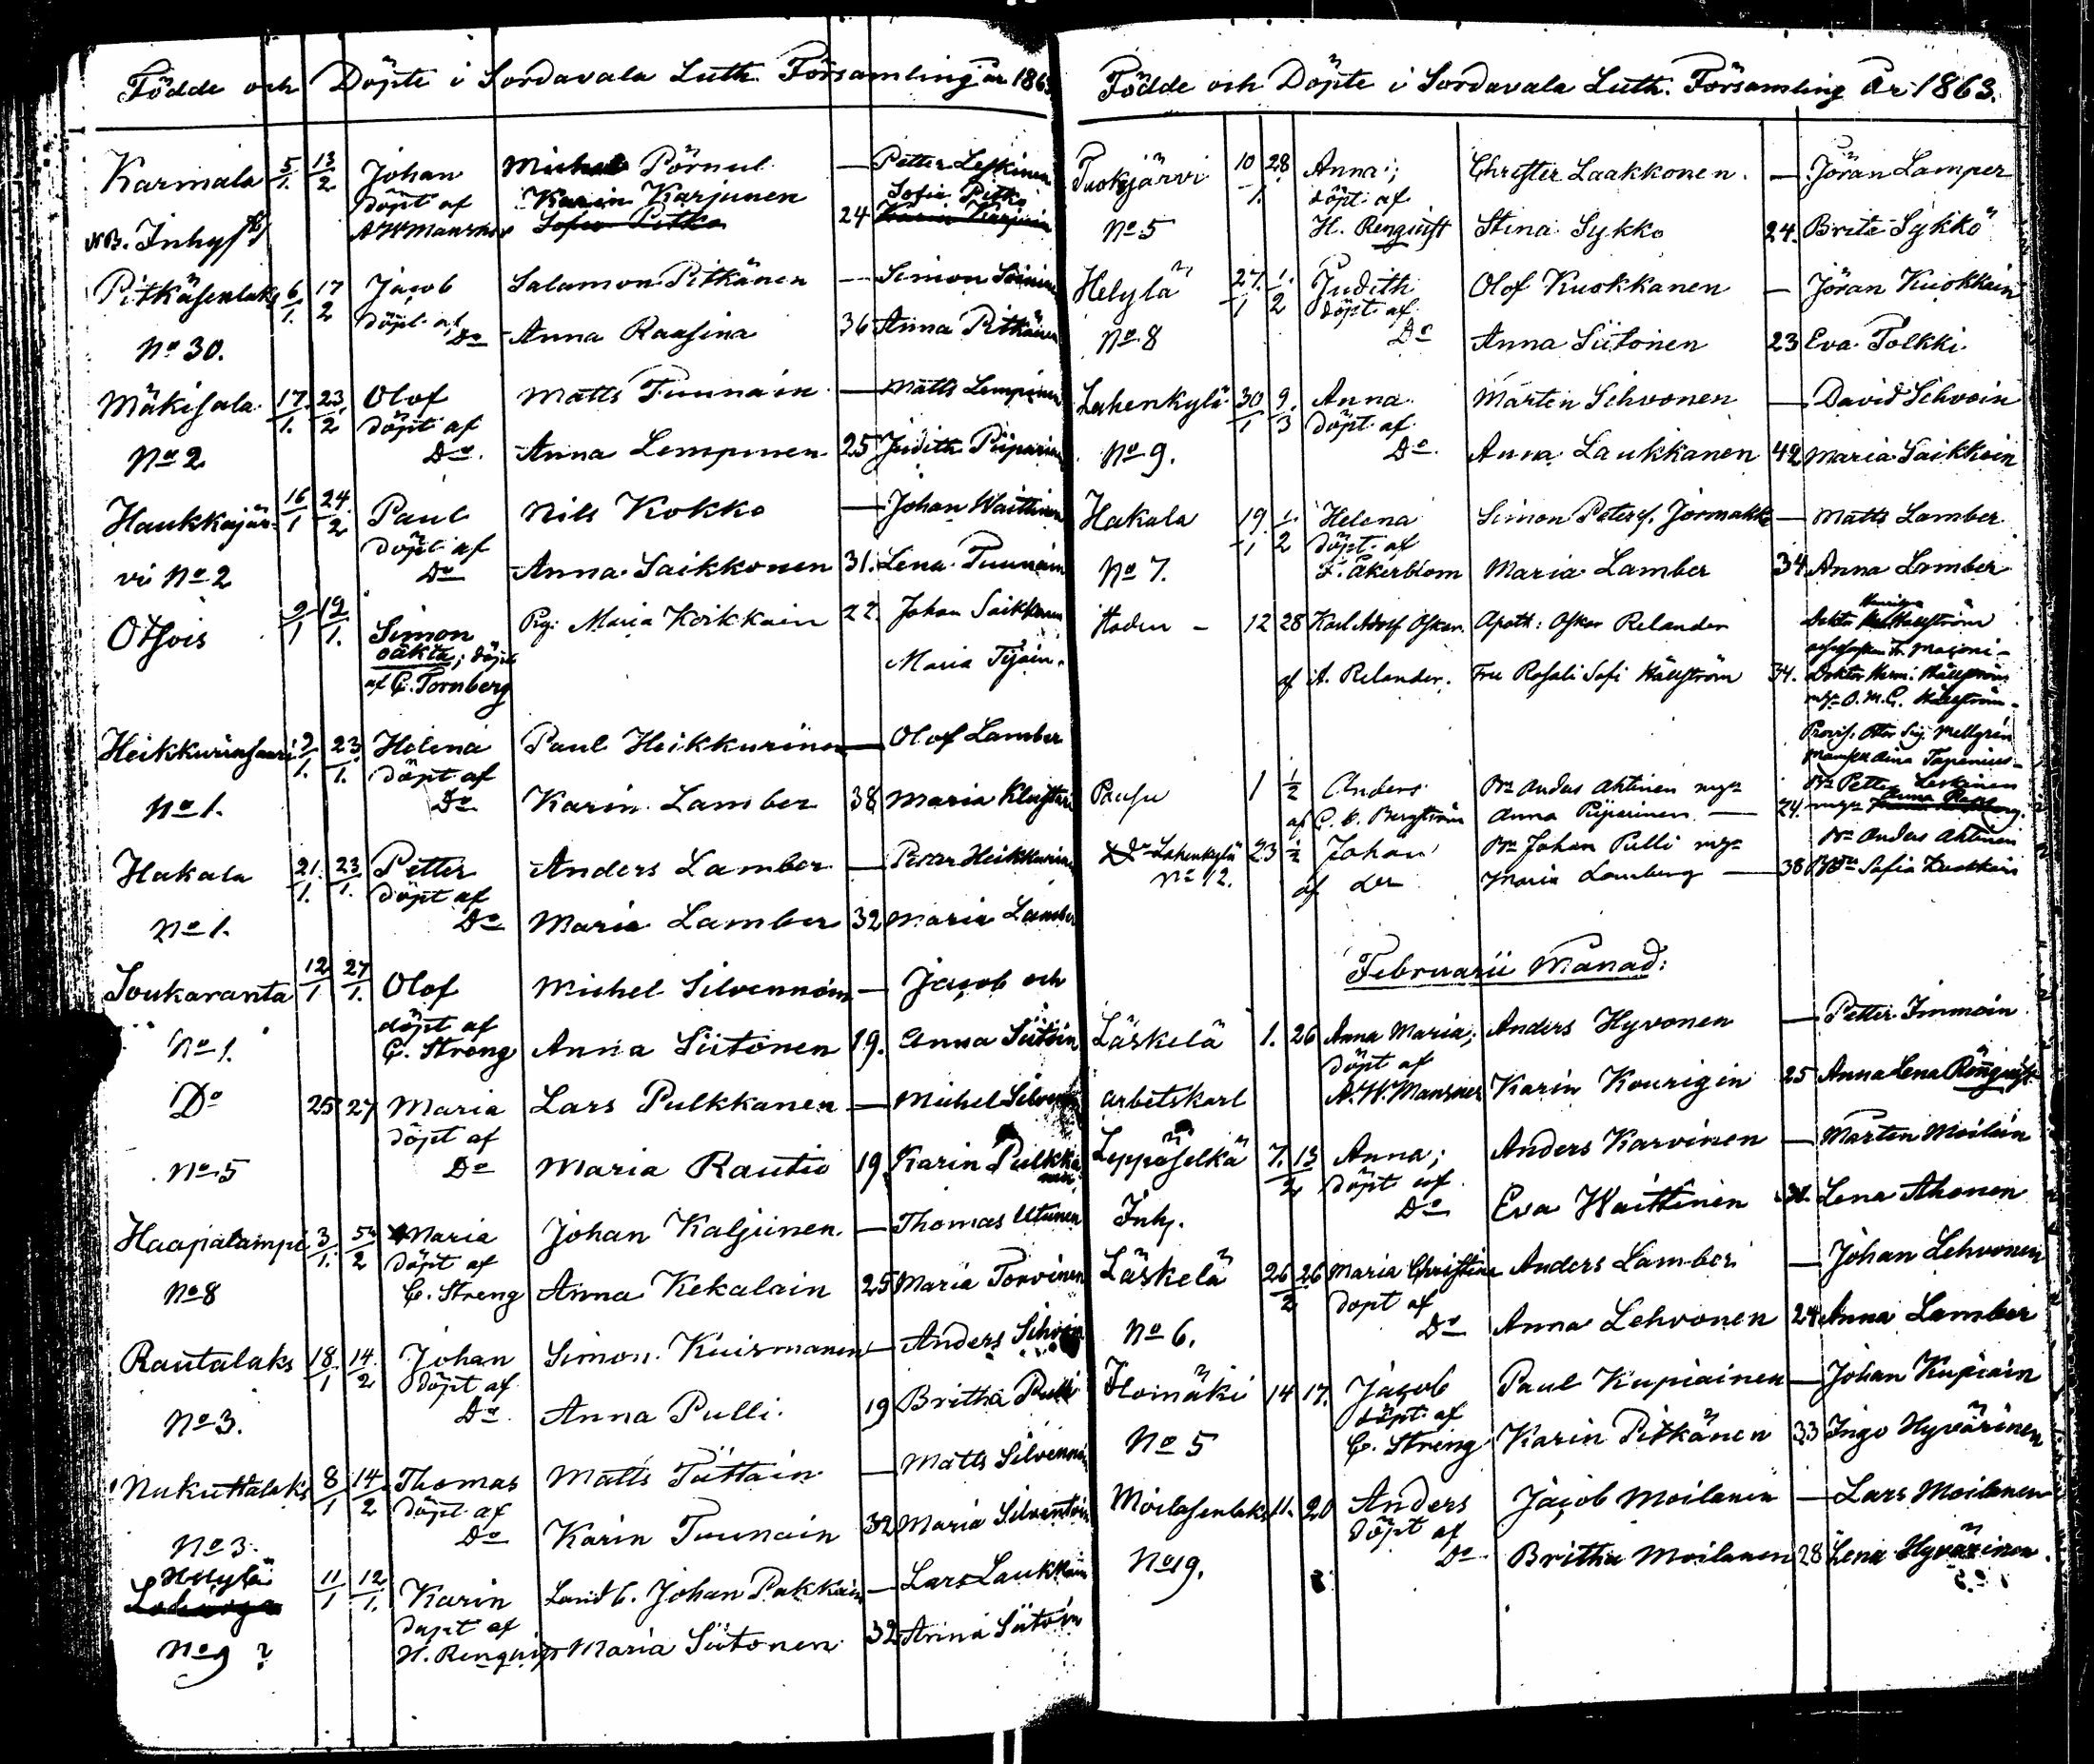 Födde och Döpte i Sordavala Luth. Församling år 1863
Karmala 5/1. 13/2 Johan Michel Pörnul — Petter Leskinen
döpt af Karin Karjunen Sofia Pitko
NB. Inhys A. W. Mansner Sofia Pitko 24
Pitkäsenlaks 6/1. 17/2 Jacob Salamon Pitkänen — Simon Soininen
döpt af
No 30. Do Anna Raasina 36 Anna Pitkäinen
Mäkisala 17/1. 23/2 Olof Matts Tuunain — Matts Lempinen
döpt af
No 2 Do. Anna Lempinen 25 Judith Piiparinen
Haukkajär- 16/1 24/2 Paul Nils Kokko — Johan Waittinen
döpt af
vi No 2 Do Anna Saikkonen 31. Lena Tuunain
Otsois 9/1 19/1. Simon Pig. Maria Korkkain 22. Johan Saikkonen
oäkta; döpt Maria
af C. Tornberg
Heikkurinsaari 9/1. 23/1. Helena Paul Heikkurinen — Olof Lamber
döpt af
No 1. Do Karin Lamber 38 Maria
Hakala 21/1. 23/1. Petter Anders Lamber — Petter Heikkurinen
döpt af
No 1. Do Maria Lamber 32 Maria Lamber
Soukaranta 12/1 27/1. Olof Michel Silvennoin — Jacob och
döpt af
No 1. C. Streng Anna Siitonen 19. Anna Siitoin
Do 25 27 Maria Lars Pulkkanen — Michel
döpt af
No 5 Do Maria Rautio 19 Karin Pulkka-
nen
Haapalampi 3/1. 5/2 Maria Johan Kaljunen — Thomas Utunen
döpt af
No 8 C. Streng Anna Kekalain 25 Maria Torvinen
Rautalaks 18/1 14/2 Johan Simon Kuismanen — Anders
döpt af
No 3. Do. Anna Pulli 19 Britha Pulli
Nukuttalaks 8/1 14/2 Thomas Matts Tüttain — Matts Silvennoin
döpt af
No 3. Do Karin Tuunain 32 Maria
Helylä
11/1 12/1. Karin Landb. Johan Pakkain — Lars Laukkain
döpt af
No 9 ? H. Renquist Maria Siitonen 32 Anna Siitoin
Födde och Döpte i Sordavala Luth. Församling År 1863.
Tuokjärvi 10/1. 28 Anna; Christer Laakkonen. — Jöran Lamper
döpt af
No 5 H. Renquist Stina Sykko 24. Brita Sykkö
Helylä 27/1 1/2 Judith Olof Kuokkanen — Jöran Kuokkain
döpt af
No 8 Do Anna Siitonen 23 Eva Tolkki
Lahenkylä 30/1 9/3 Anna Mårten Sihvonen — David Sihvoin
döpt af
No 9. Do. Anna Laukkanen 42 Maria Saikkoin
Hakala 19/1 1/2 Helena Simon Petersf. Jormakka — Matts Lamber
döpt af
No 7. F. Åkerblom Maria Lamber 34 Anna Lamber
Staden — 12 28 Karl Adolf Oskar. Apoth: Oskar Relander
af A. Relander. Fru Rosali Sofi Hällström 34. Doktor Herm: Hällström
Pausu 1 1/2 Anders Bn Anders Ahtinen — Bn Petter Leskinen
af C. G. Bergström Anna Piiparinen — 24.
Do Lahenkylä 23 1/2 Johan Bn Johan Pulli — Bn Anders Ahtinen
No 12. af do Maria Lamberg — 38 Sofia Kuokkain
Februarii Månad:
Läskelä 1. 26 Anna Maria; Anders Hyvonen — Petter Immoin
döpt af
arbetskarl A. W. Mansner Karin Kourigin 25 Anna Lena Renquist
Leppäselkä 7/2 13 Anna; Anders Karvinen — Mårten Moilain
döpt af
Inh. Do Eva Waittinen 31. Lena Ahonen
Läskelä 26/2 26 Maria Christina Anders Lamber — Johan Lehvonen
döpt af
No 6. Do Anna Lehvonen 24 Anna Lamber
Ilomäki 14 17. Jacob Paul Kupiainen — Johan Kupiain
döpt af
No 5 C. Streng Karin Pitkänen 33 Inga Hyvärinen
Moilasenlaks 11. 20 Anders Jacob Moilanen — Lars Moilanen
döpt af
No 19. Do Britha Moilanen 28 Lena Hyvärinen.